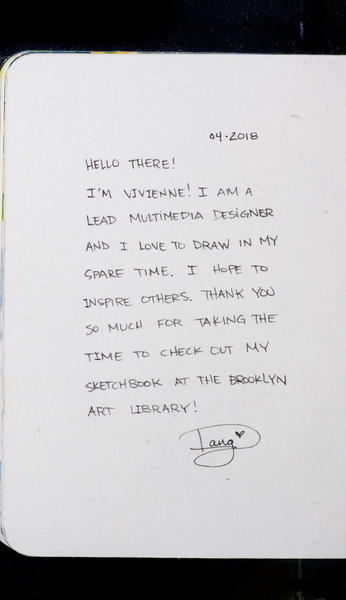 04.2018
HELLO THERE!
I'M VIVIENNE! I AM A
LEAD MULTIMEDIA DESIGNER
AND I LOVE TO DRAW IN MY
SPARE TIME. I HOPE TO
INSPIRE OTHERS. THANK YOU
SO MUCH FOR TAKING THE
TIME TO CHECK OUT MY
SKETCHBOOK AT THE BROOKLYN
ART LIBRARY!
Dang